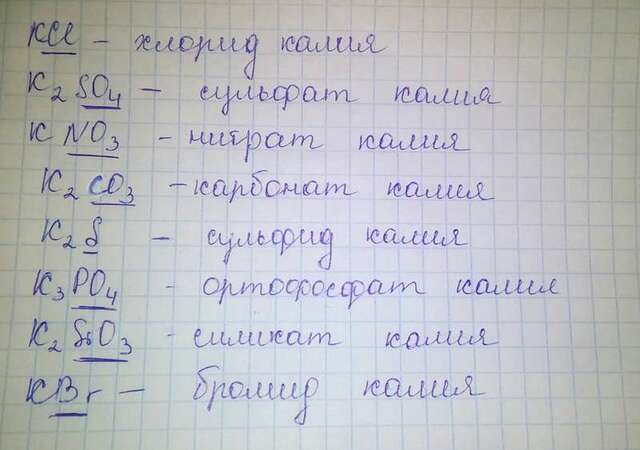 KCl - хлорид калия
K₂SO₄ - сульфат калия
KNO₃ - нитрат калия
K₂CO₃ - карбонат калия
K₂S - сульфид калия
K₃PO₄ - ортофосфат калия
K₂SiO₃ - силикат калия
KBr - бромид калия